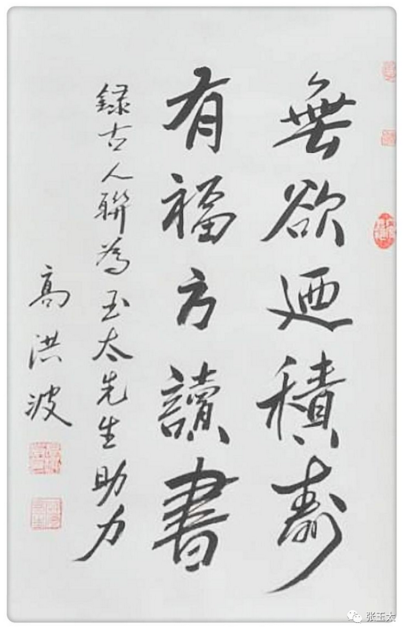 無欲迺積壽
有福方讀書
録古人聯為玉太先生助力
高洪波
张玉太